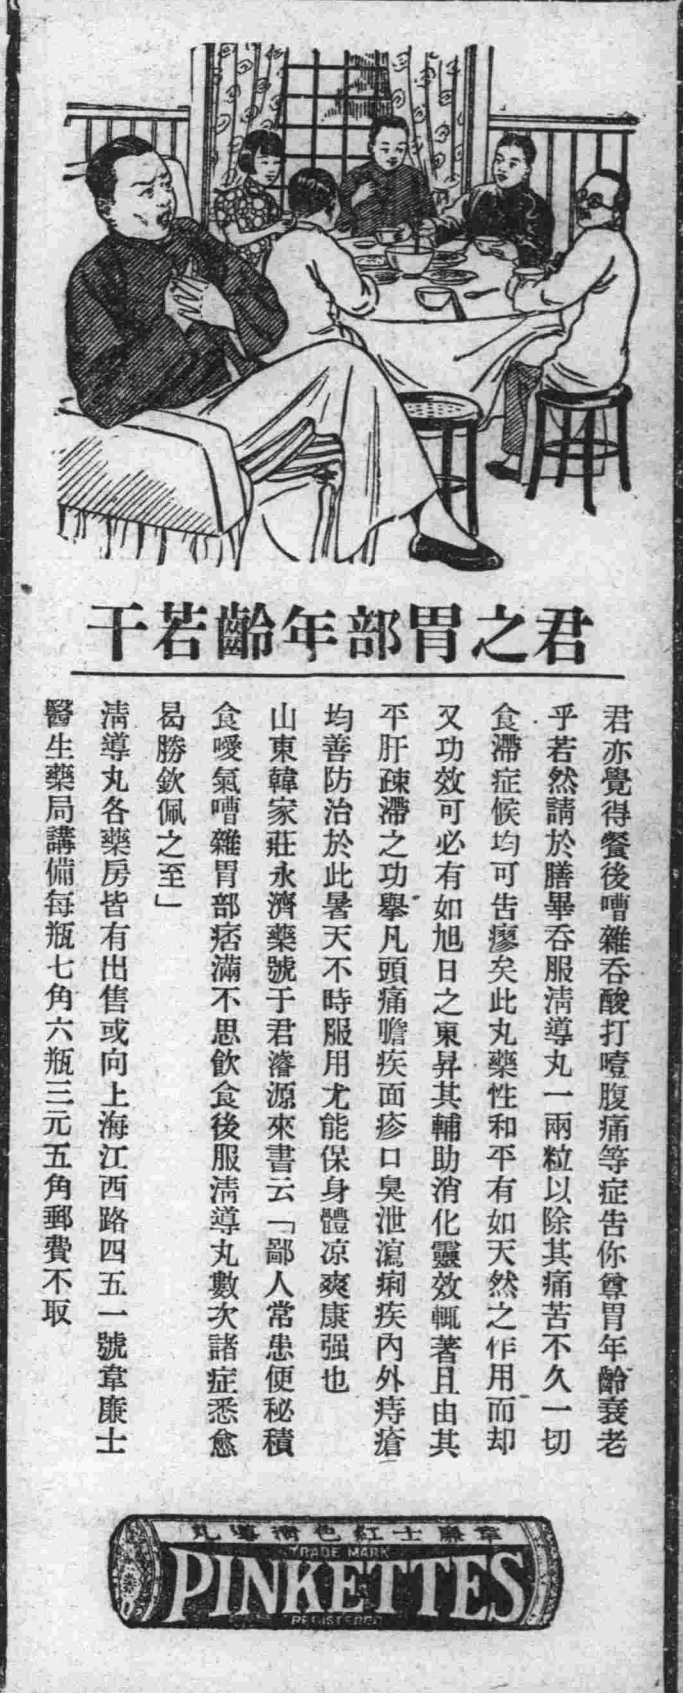 君之胃部年齡若干
君亦覺得餐後嘈雜吞酸打噎腹痛等症告你尊胃年齡衰老
乎若然請於膳畢吞服清導丸一兩粒以除其痛苦不久一切
食滯症候均可告瘳矣此丸藥性和平有如天然之作用而却
又功效可必有如旭日之東昇其輔助消化靈效輒著且由其
平肝疎滯之功舉凡頭痛膽疾面疹口臭泄瀉痢疾內外痔瘡
均善防治於此暑天不時服用尤能保身體凉爽康强也
山東韓家莊永濟藥號于君濬源來書云「鄙人常患便秘積
食噯氣嘈雜胃部痞滿不思飲食後服清導丸數次諸症悉愈
曷勝欽佩之至」
清導丸各藥房皆有出售或向上海江西路四五一號韋廉士
醫生藥局講備每瓶七角六瓶三元五角郵費不取
韋廉士紅色清導丸
TRADE MARK
PINKETTES
REGISTERED